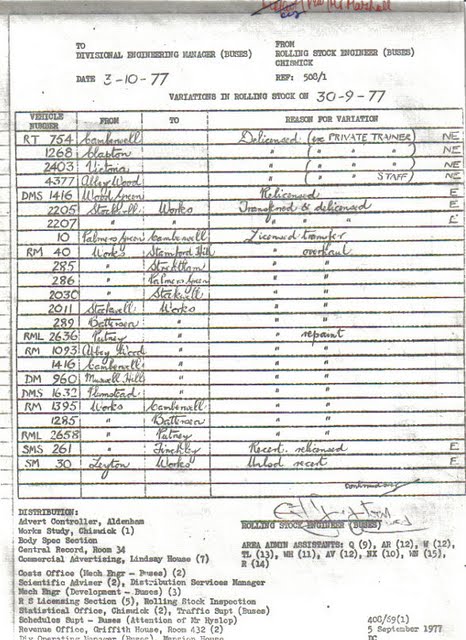 Mr Marshall
TO
DIVISIONAL ENGINEERING MANAGER (BUSES)
FROM
ROLLING STOCK ENGINEER (BUSES)
CHISWICK
DATE 3-10-77
REF: 508/1
VARIATIONS IN ROLLING STOCK ON 30-9-77
VEHICLE NUMBER FROM TO REASON FOR VARIATION
RT 754 Camberwell Delicensed (ex PRIVATE TRAINER) NE
1268 Clapton " ( " " ) NE
2403 Victoria " ( " " ) NE
4377 Abbey Wood " ( " STAFF) NE
DMS 1416 Wood Green Relicensed E
2205 Stockwell Works Transferred & delicensed E
2207 " " " " " E
10 Palmers Green Camberwell Licensed transfer
RM 40 Works Stamford Hill " overhaul
285 " Streatham " "
286 " Palmers Green " "
2030 " Stockwell " "
2011 Stockwell Works " "
289 Battersea " " "
RML 2636 Putney " " repaint
RM 1093 Abbey Wood " " "
1416 Camberwell " " "
DM 960 Muswell Hill " " "
DMS 1632 Plumstead " " "
RM 1395 Works Camberwell " "
1285 " Battersea " "
RML 2658 " Putney " "
SMS 261 " Finchley Recert. relicensed E
SM 30 Leyton Works Unlsd recert E
continued
DISTRIBUTION:
Advert Controller, Aldenham
Works Study, Chiswick (1)
Body Spec Section
Central Record, Room 34
Commercial Advertising, Lindsay House (7)
ROLLING STOCK ENGINEER (BUSES)
AREA ADMIN ASSISTANTS: Q (9), AR (12), W (12),
TL (13), WH (11), AV (12), NX (10), WN (15),
R (14)
Costs Office (Mech Engr - Buses) (2)
Scientific Adviser (2), Distribution Services Manager
Mech Engr (Development - Buses) (3)
R S Licensing Section (5), Rolling Stock Inspection
Statistical Office, Chiswick (2), Traffic Supt (Buses)
Schedules Supt - Buses (Attention of Mr Hyslop)
Revenue Office, Griffith House, Room 432 (2)
400/69(1)
5 September 1977